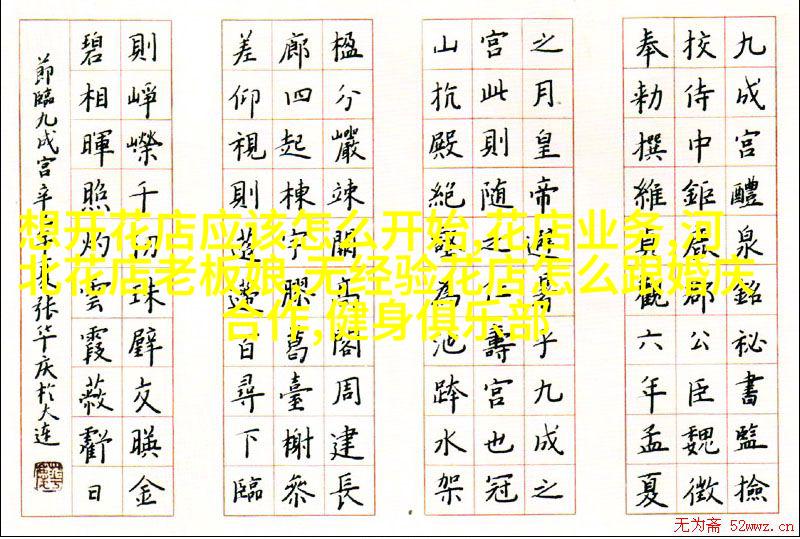 九成宫醴泉銘秘書監撿
挍侍中鉅鹿郡公臣魏徵
奉勑撰維貞觀六年孟夏
之月皇帝避暑乎九成之
宫此則随之仁壽宫也冠
山抗殿絶壑為池跨水架
楹分巖竦闕高閣周建長
廊四起棟宇膠葛臺榭參
差仰視則迢遰百尋下臨
則峥嵘千仞珠璧交暎金
碧相暉照灼雲霞蔽虧日
節臨九成宫辛夏張华庆於大连
想开花店应该怎么开始,花店业务,河
北花店老板娘,无经验花店怎么跟婚庆
合作,健身俱乐部
无为斋 52wwz.cn